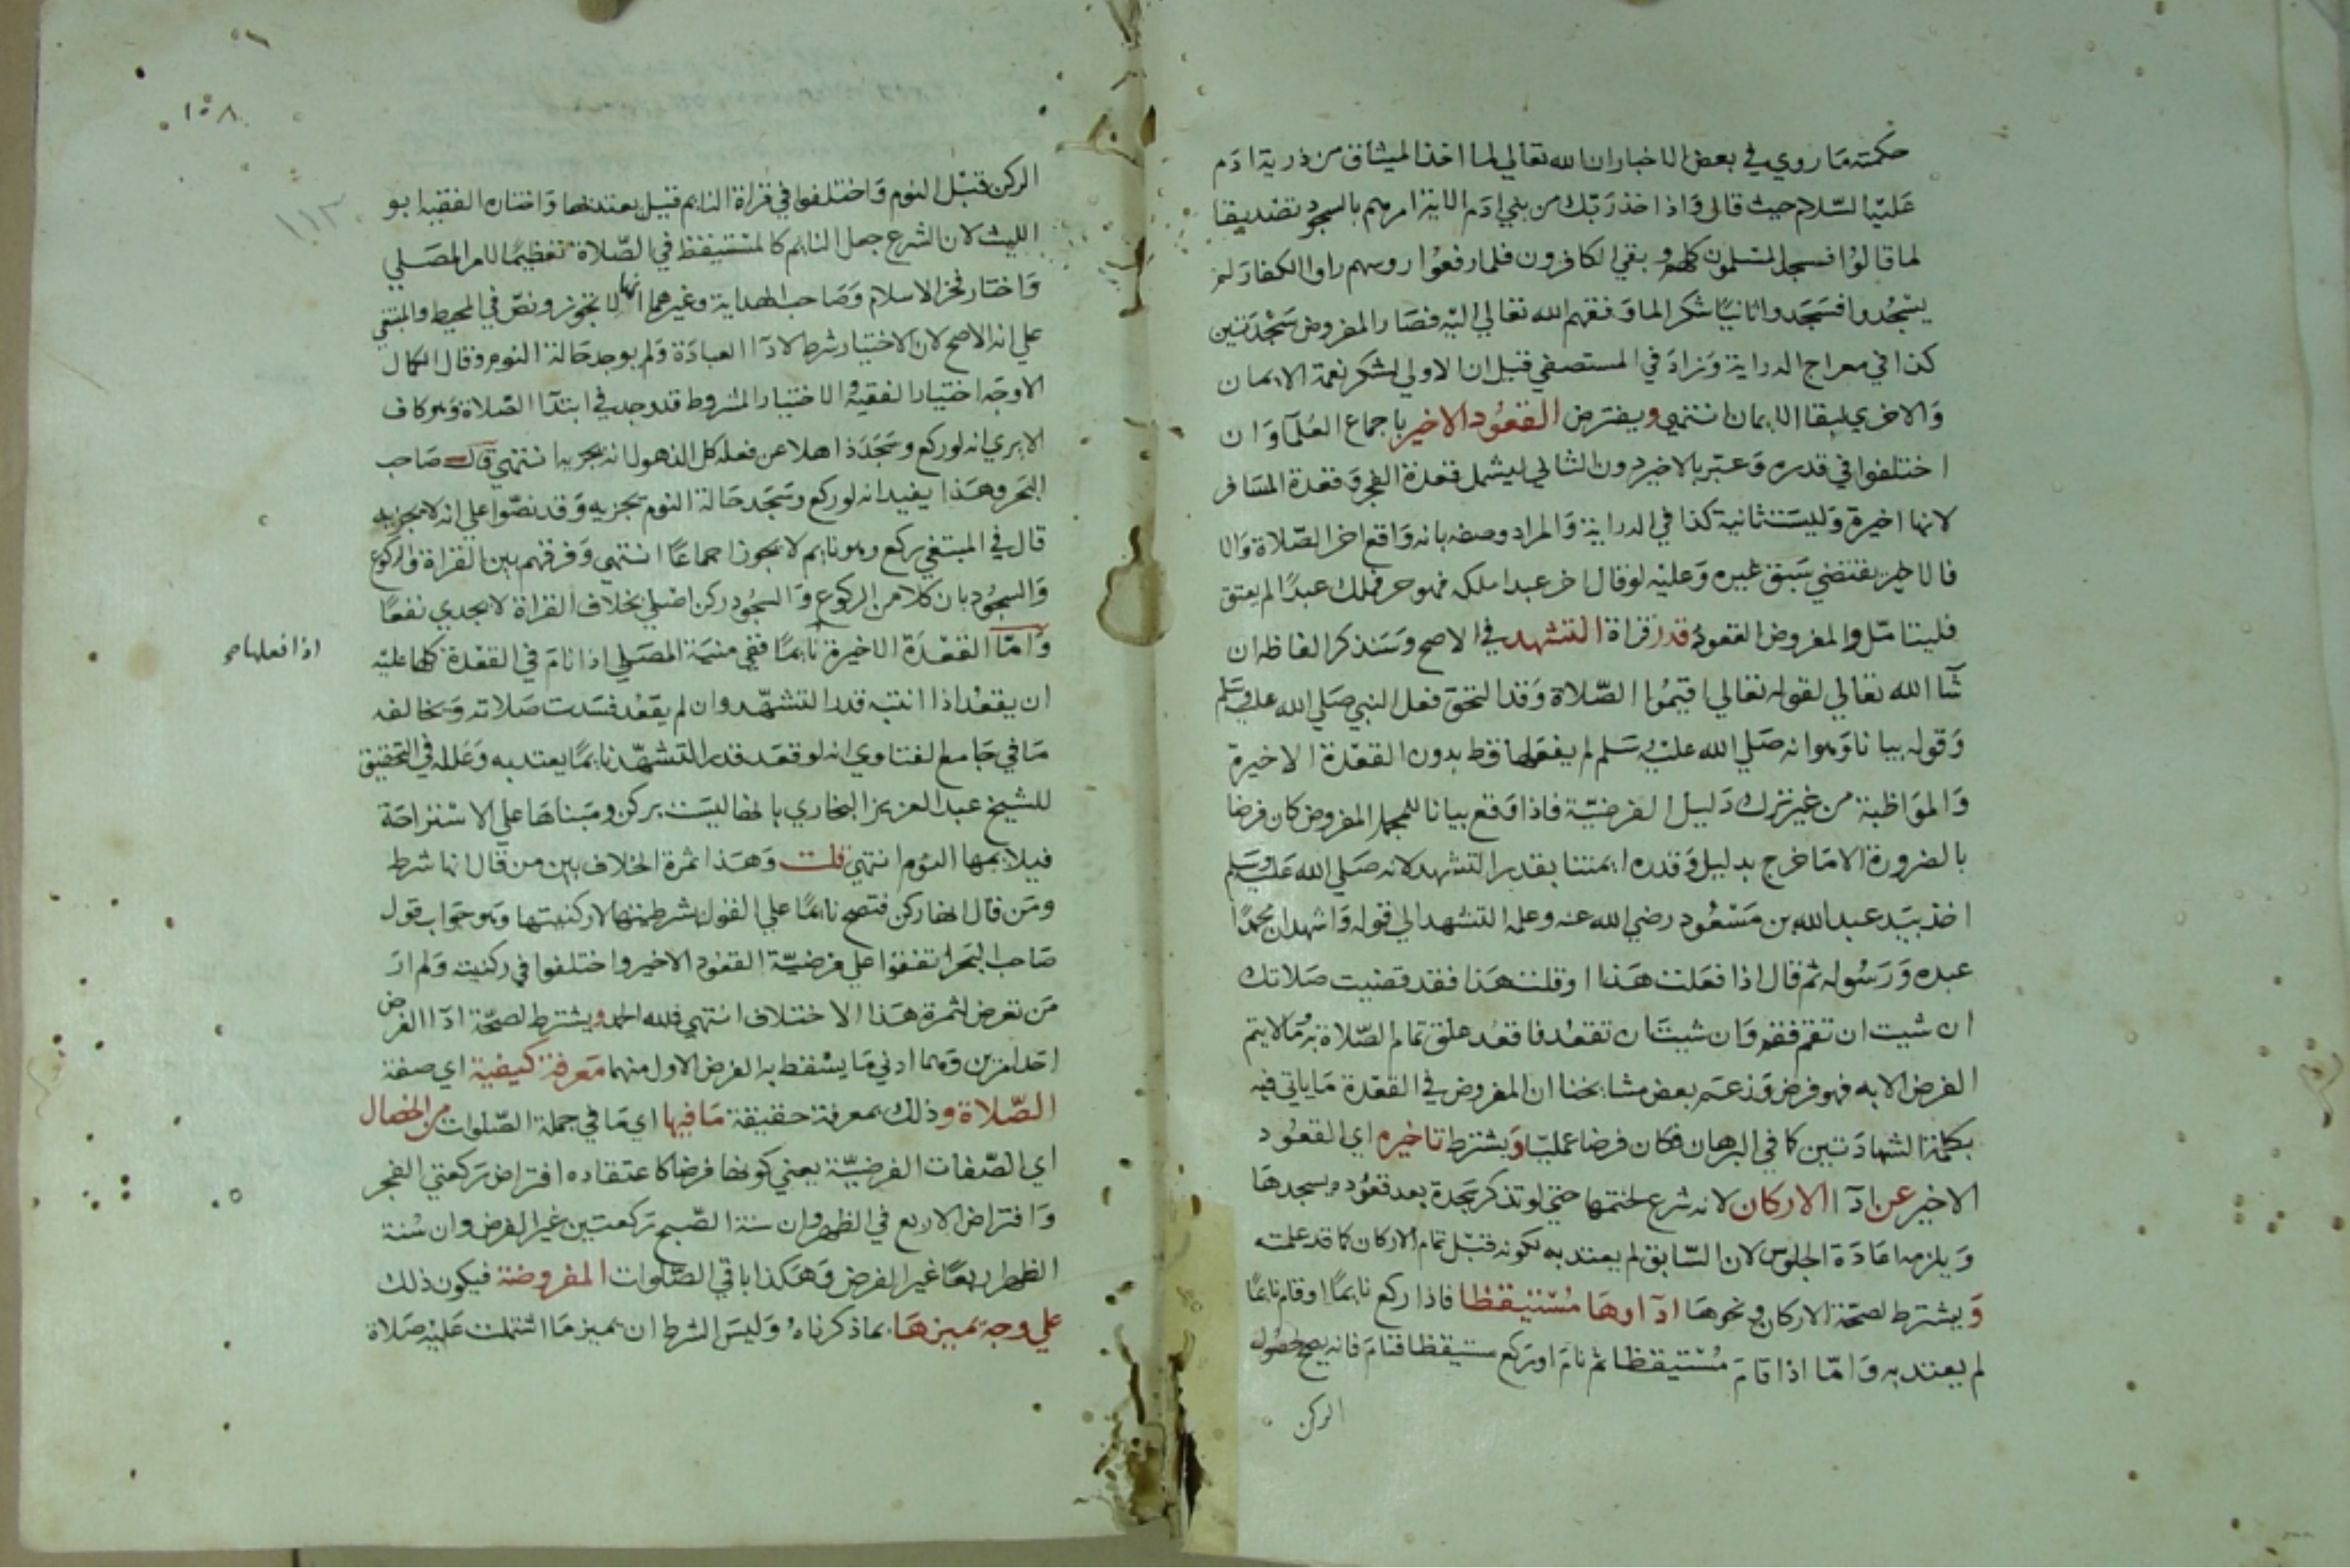 حكمته ما روي في بعض الاخبار ان الله تعالي لما اخذ الميثاق من ذرية ادم
عليه السلام حيث قال واذا خذ ربك من بني ادم الاية امرهم بالسجود تصديقا
لما قالوا فسجد المسلمون كلهم وبقي الكافرون فلما رفعوا روسهم راوا الكفار لم
يسجدوا فسجدوا ثانيا شكرا لما وفقهم الله تعالي اليه فصار المفروض سجدتين
كذا في معراج الدراية وزاد في المستصفي قيل ان الاولي لشكر نعمة الايمان
والاخري لبقا الايمان انتهي ويفترض القعود الاخير باجماع العلما وان
اختلفوا في قدره وعبر بالاخير دون الثاني ليشمل قعدة الفجر وقعدة المسافر
لانها اخيرة وليست ثانية كذا في الدراية والمراد وصفه بانه واقع اخر الصلاة والا
فالاخير يقتضي سبق غيره وعليه لو قال اخر عبد املكه فهو حر فملك عبدا لم يعتق
فليتامل والمفروض القعود قدر قراة التشهد في الاصح وسنذكر الفاظه ان
شا الله تعالي لقوله تعالي اقيموا الصلاة وقد التحق فعل النبي صلي الله عليه وسلم
وقوله بيانا وهو انه صلي الله عليه وسلم لم يفعلها قط بدون القعدة الاخيرة
والمواظبة من غير ترك دليل الفرضية فاذا وقع بيانا للمجمل المفروض كان فرضا
بالضرورة الا ما خرج بدليل وقدره ايمتنا بقدر التشهد لانه صلي الله عليه وسلم
اخذ بيد عبد الله بن مسعود رضي الله عنه وعلمه التشهد الي قوله واشهد ان محمدا
عبده ورسوله ثم قال اذا فعلت هذا او قلت هذا فقد قضيت صلاتك
ان شيت ان تقم فقم وان شيت ان تقعد فاقعد علق تمام الصلاة به وما لا يتم
الفرض الا به فهو فرض وزعم بعض مشايخنا ان المفروض في القعدة ما ياتي فيه
بكلمة الشهادتين كا في البرهان فكان فرضا عمليا ويشترط تاخيره اي القعود
الاخير عن ادآ الاركان لانه شرع لختمها حتي لو تذكر سجدة بعد قعوده يسجدها
ويلزمه اعادة الجلوس لان السابق لم يعتد به لكونه قبل تمام الاركان كما قد علمته
ويشترط لصحة الاركان ونحوها ادآوها مستيقظا فاذا ركع نايما او قام نايما
لم يعتد به واما اذا قام مستيقظا ثم نام او ركع مستيقظا فنام فانه يصح لحصول
الركن
١٥٨
١١٢
الركن قبل النوم واختلفوا في قراة النايم قيل يعتد بها واختاره الفقيه ابو
الليث لان الشرع جعل النايم كالمستيقظ في الصلاة تعظيما لامر المصلي
واختار فخر الاسلام وصاحب الهداية وغيرهما انها لا تجوز ونص في المحيط والمبتغي
علي انه الاصح لان الاختيار شرط لادآ العبادة ولم يوجد حالة النوم وقال الكمال
الاوجه اختيار الفقيه والاختيار المشروط قد وجد في ابتدآ الصلاة وهو كاف
الا يري انه لو ركع وسجد ذاهلا عن فعله كل الذهول انه يجزيه انتهي قال صاحب
البحر وهذا يفيد انه لو ركع وسجد حالة النوم يجزيه وقد نصوا علي انه لا يجزيه
قال في المبتغي ركع وهو نايم لا يجوز اجماعا انتهي وفرقهم بين القراة والركوع
والسجود بان كلا من الركوع والسجود ركن اصلي بخلاف القراة لا يجدي نفعا
واما القعدة الاخيرة نايما ففي منية المصلي اذا نام في القعدة كلها عليه
اذا فعلها صح
ان يقعد اذا انتبه قدر التشهد وان لم يقعد فسدت صلاته ويخالفه
ما في جامع الفتاوي انه لو قعد قدر التشهد نايما يعتد به وعلله في التحقيق
للشيخ عبد العزيز البخاري بانها ليست بركن ومبناها علي الاستراحة
فيلايمها النوم انتهي قلت وهذا ثمرة الخلاف بين من قال انها شرط
ومن قال انها ركن فتصح نايما علي القول بشرطيتها لا ركنيتها وهو جواب قول
صاحب البحر اتفقوا علي فرضية القعود الاخير واختلفوا في ركنيته ولم ار
من تعرض لثمرة هذا الاختلاف انتهي فلله الحمد ويشترط لصحة ادآ الفرض
احد امرين وهما ادني ما يسقط به الفرض الاول منهما معرفة كيفية اي صفة
الصلاة وذلك بمعرفة حقيقة ما فيها اي ما في جملة الصلوات من الخصال
اي الصفات الفرضية يعني كونها فرضا كاعتقاده افتراض ركعتي الفجر
وافتراض الاربع في الظهر وان سنة الصبح ركعتين غير الفرض وان سنة
الظهر اربعا غير الفرض وهكذا باقي الصلوات المفروضة فيكون ذلك
علي وجه يميزها بما ذكرناه وليس الشرط ان يميز ما اشتملت عليه صلاة